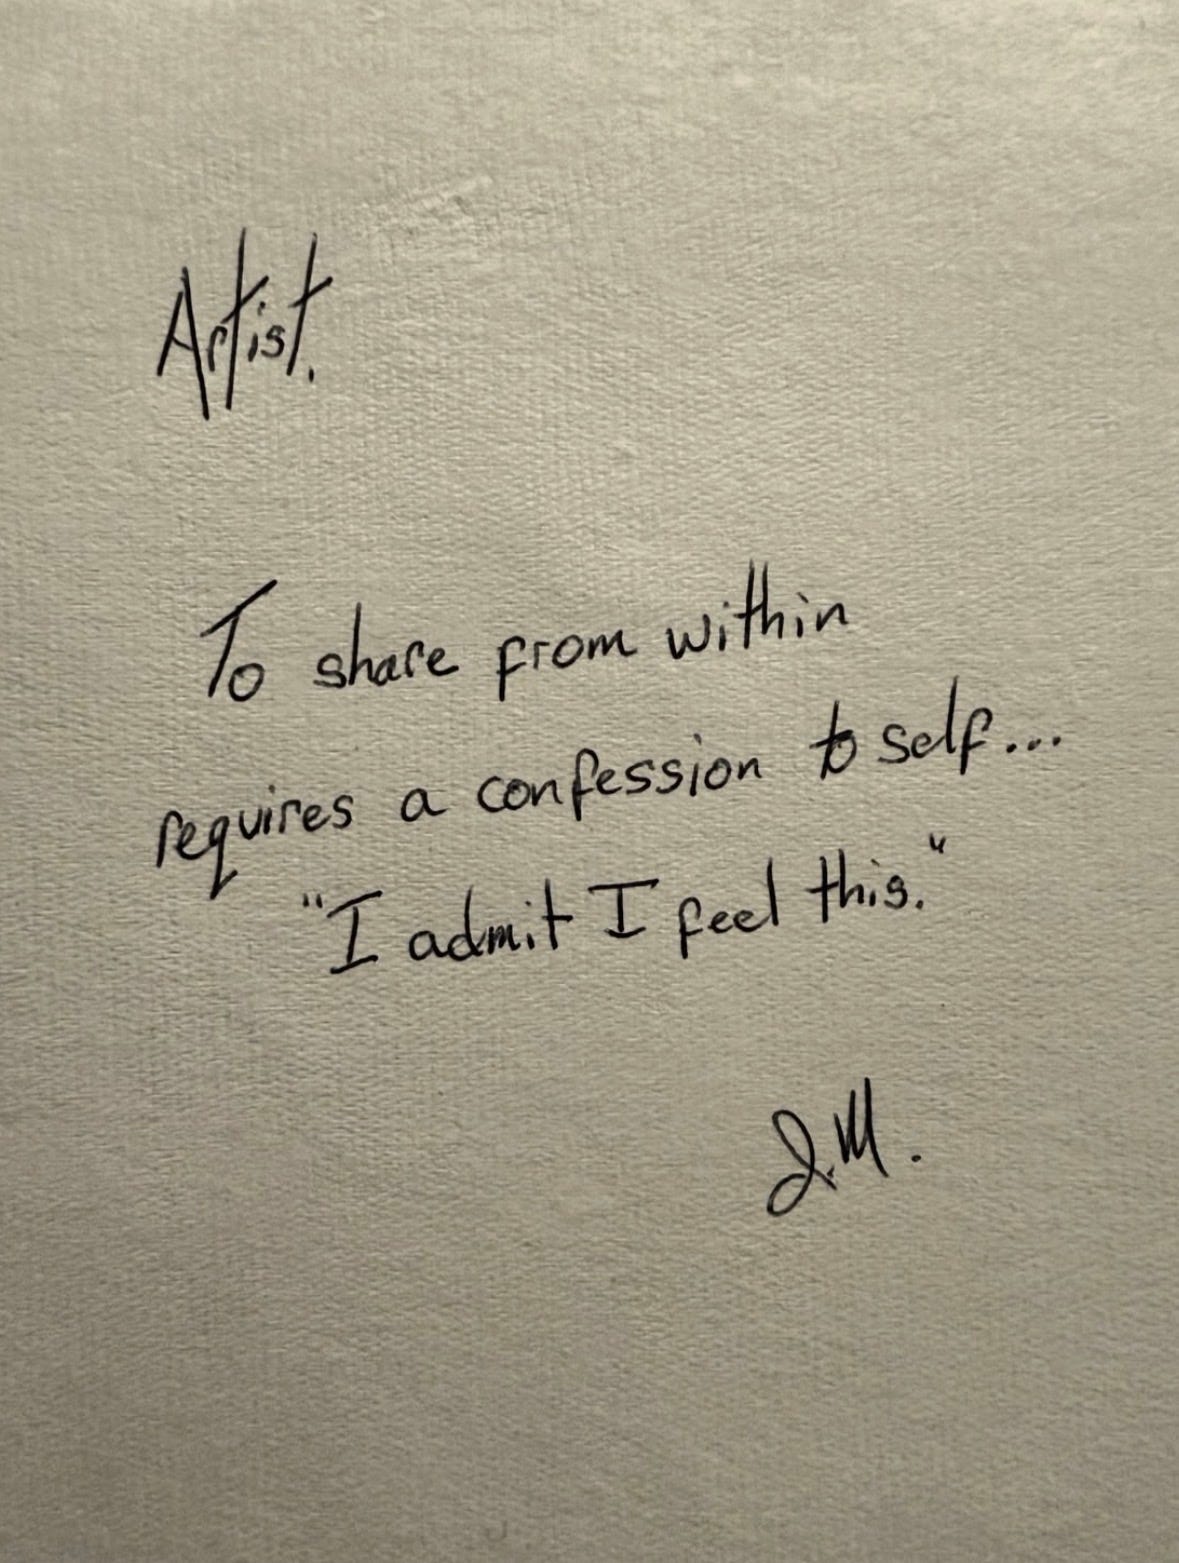 Artist.
To share from within
requires a confession to self...
"I admit I feel this."
J.M.